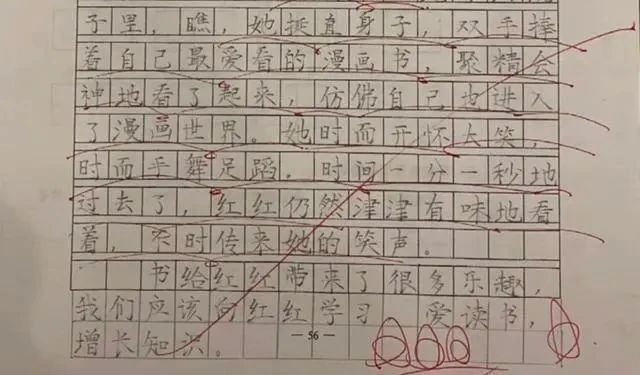 子里，瞧，她挺直身子，双手捧
着自己最爱看的漫画书，聚精会
神地看了起来，仿佛自己也进入
了漫画世界。她时而开怀大笑，
时而手舞足蹈。时间一分一秒地
过去了，红红仍然津津有味地看
着，不时传来她的笑声。
书给红红带来了很多乐趣，
我们应该向红红学习 爱读书，
增长知识。
— 56 —